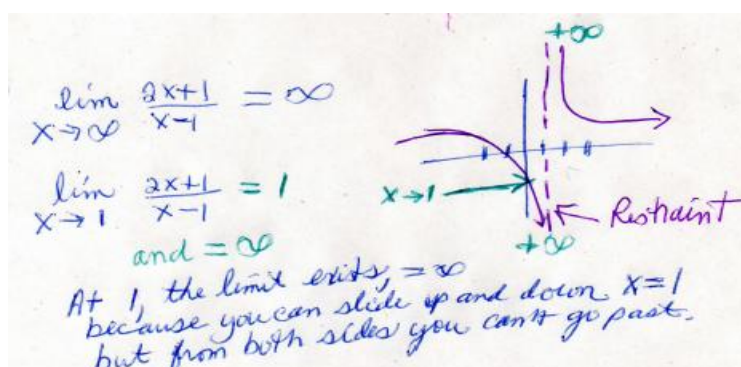 +∞
lim 2x+1 / x-1 = ∞
x→∞
lim 2x+1 / x-1 = 1
x→1
and = ∞
x→1
Restraint
+∞
At 1, the limit exists, = ∞
because you can slide up and down x=1
but from both sides you can't go past.